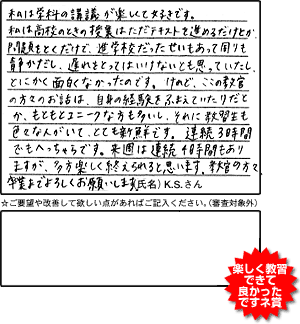 私は学科の講議が楽しくて好きです。
私は高校のときの授業はただテキストを進めるだけとか、
問題をとくだけで、進学校だったせいもあって周りも
静かだし、遅れをとってはいけないとも思っていたし、
とにかく面白くなかったのです。けれど、ここの教官
の方々のお話は、自身の経験をふまえていたりだと
か、もともとユニークな方も多いし、それに教習生も
色々な人がいて、とても新鮮です。連続3時間
でもへっちゃらです。来週は連続4時間もあり
ますが、多分楽しく終えられると思います。教官の方々、
卒業までよろしくお願いします(氏名) K.S.さん
☆ご要望や改善して欲しい点があればご記入ください。(審査対象外)
楽しく教習
できて
良かった
ですネ賞